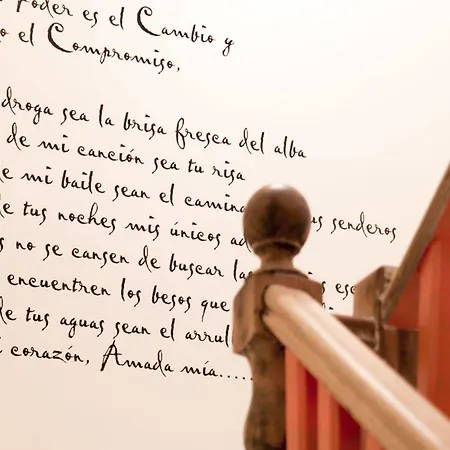 Poder es el Cambio y
el Compromiso,
droga sea la brisa fresca del alba
de mi canción sea tu risa
mi baile sean el senderos
de tus noches mis únicos
no se cansen de buscar
encuentren los besos que
de tus aguas sean el
corazón, Amada mía.....